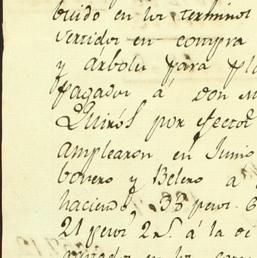 buido en los terminos
vertidos en compra
y arboles para pl
pagador á Don M
Quirós por efectos
amplearon en Junio
bonero y Belero a
haciendo 35 pesos 6
21 pesos 2 rs á la de